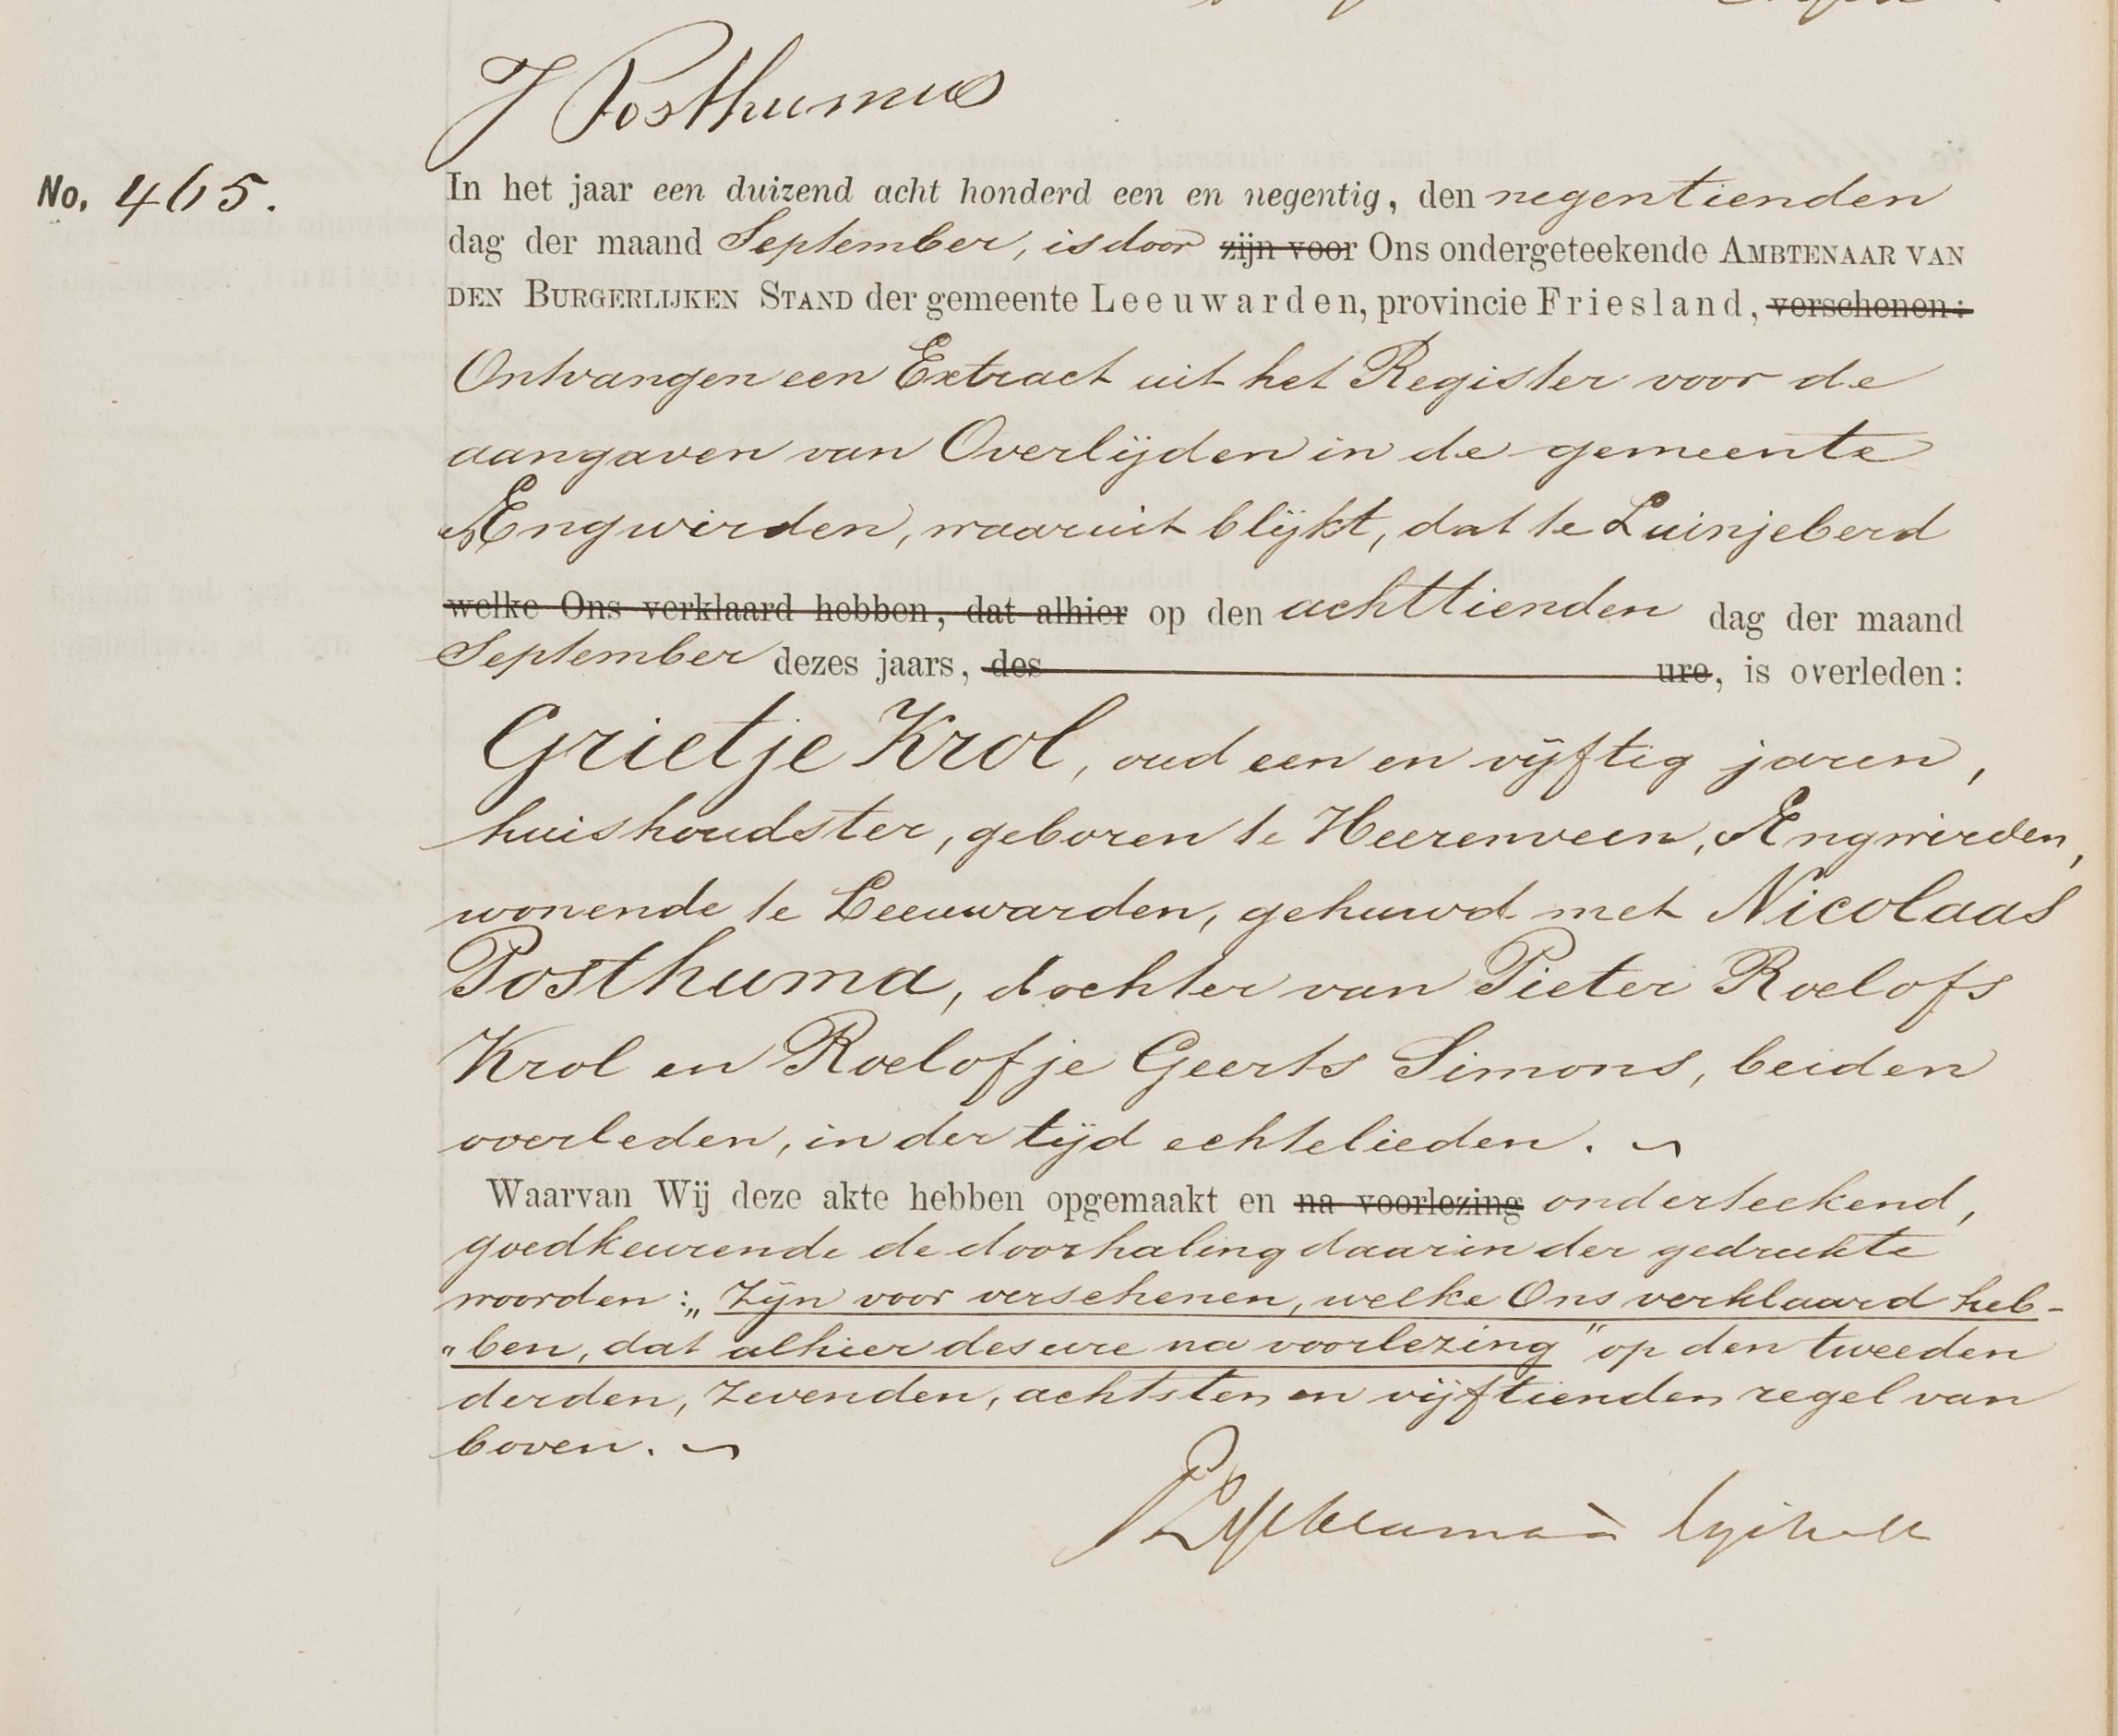 J Posthumus
No. 465.
In het jaar een duizend acht honderd een en negentig, den negentienden
dag der maand September, is door zijn voor Ons ondergeteekende AMBTENAAR VAN
DEN BURGERLIJKEN STAND der gemeente Leeuwarden, provincie Friesland, verschenen:
Ontvangen een Extract uit het Register voor de
aangaven van Overlijden in de gemeente
Ængwirden, waaruit blijkt, dat te Luinjeberd
welke Ons verklaard hebben, dat alhier op den achttienden dag der maand
September dezes jaars, des ure, is overleden:
Grietje Krol, oud een en vijftig jaren,
huishoudster, geboren te Heerenveen, Ængwirden,
wonende te Leeuwarden, gehuwd met Nicolaas
Posthuma, dochter van Pieter Roelofs
Krol en Roelofje Geerts Simons, beiden
overleden, in der tijd echtelieden.
Waarvan Wij deze akte hebben opgemaakt en na voorlezing onderteekend,
goedkeurende de doorhaling daarin der gedrukte
woorden: „Zijn voor verschenen, welke Ons verklaard heb-
"ben, dat alhier des ure na voorlezing" op den tweeden
derden, zevenden, achtsten en vijftienden regel van
boven.